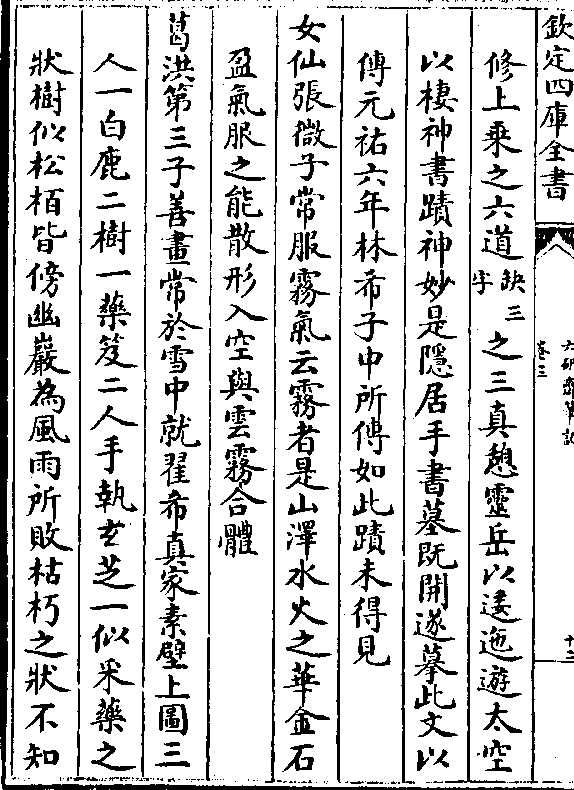 欽定四庫全書
修上乘之六道缺三字之三真憩靈岳以逶迤遊太空
以棲神書蹟神妙是隱居手書墓既開遂摹此文以
傳元祐六年林希子中所傳如此蹟未得見
女仙張微子常服霧氣云霧者是山澤水火之華金石
盈氣服之能散形入空與雲霧合體
葛洪第三子善畫常於雪中就翟希真家素壁上圖三
人一白鹿二樹一藥笈二人手執玄芝一似采藥之
狀樹似松栢皆傍幽巖為風雨所敗枯朽之狀不知